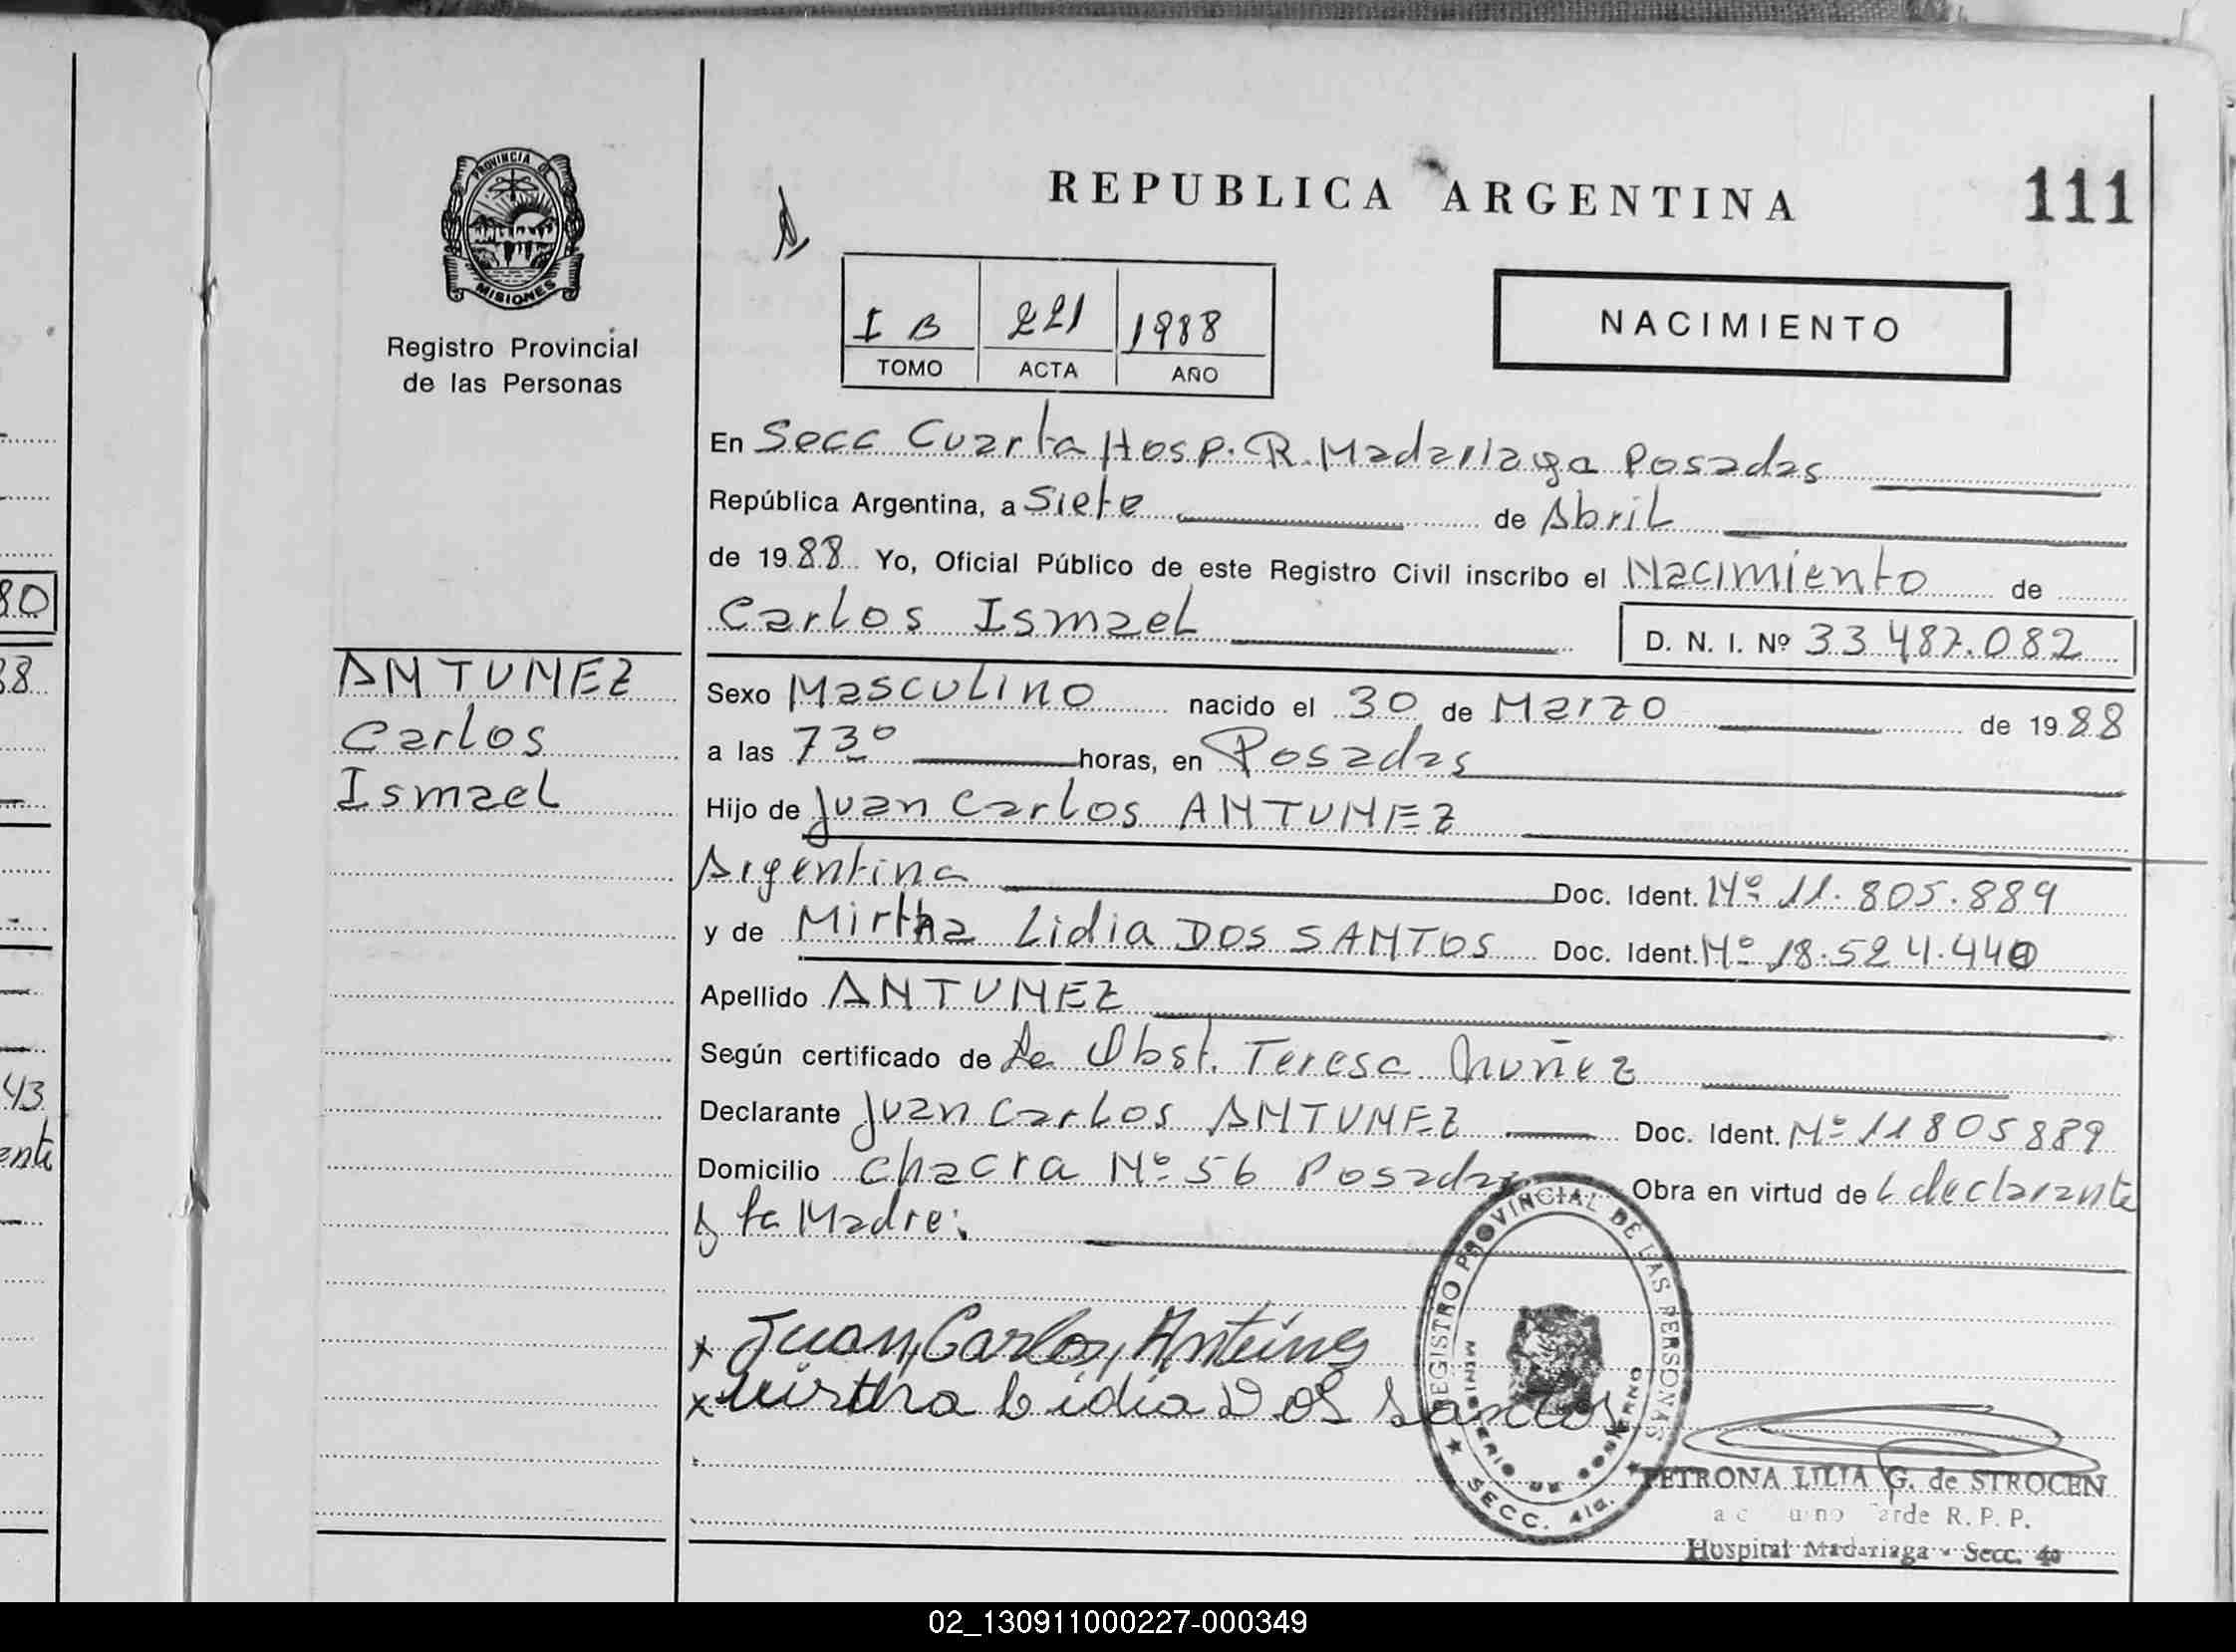 80
38
43
ente
PROVINCIA DE
MISIONES
Registro Provincial
de las Personas
ANTUNEZ
Carlos
Ismael
REPUBLICA ARGENTINA
111
I B 221 1988
TOMO ACTA AÑO
NACIMIENTO
En Secc Cuarta Hosp. R. Madariaga Posadas
República Argentina, a Siete de Abril
de 1988 Yo, Oficial Público de este Registro Civil inscribo el Nacimiento de
Carlos Ismael D. N. I. Nº 33.487.082
Sexo Masculino nacido el 30 de Marzo de 1988
a las 7 30 horas, en Posadas
Hijo de Juan Carlos ANTUNEZ
Argentina Doc. Ident. Nº 11.805.889
y de Mirtha Lidia DOS SANTOS Doc. Ident. Nº 18.524.440
Apellido ANTUNEZ
Según certificado de La Obst. Teresa Nuñez
Declarante Juan Carlos ANTUNEZ Doc. Ident. Nº 11805889
Domicilio Chacra Nº 56 Posadas Obra en virtud de L declarante
y la Madre:
x Juan Carlos Antunez
x Mirtha Lidia Dos Santos
REGISTRO PROVINCIAL DE LAS PERSONAS
MINISTERIO DE GOBIERNO
SECC. 4ta.
PETRONA LILIA G. de STROCEN
R. P. P.
Hospital Madariaga - Secc. 4a
02_130911000227-000349